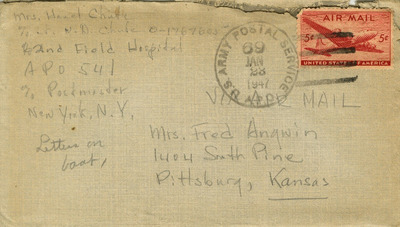 Mrs. Hazel
82nd Field Hospital
APO 541
% Postmaster
New York, N.Y.
Letters on
boat,
U.S. ARMY POSTAL SERVICE
69
JAN
1947
A.P.O.
AIR MAIL
5¢ 5¢
UNITED STATES OF AMERICA
VIA AIR MAIL
Mrs. Fred Angwin
1404 South Pine
Pittsburg, Kansas